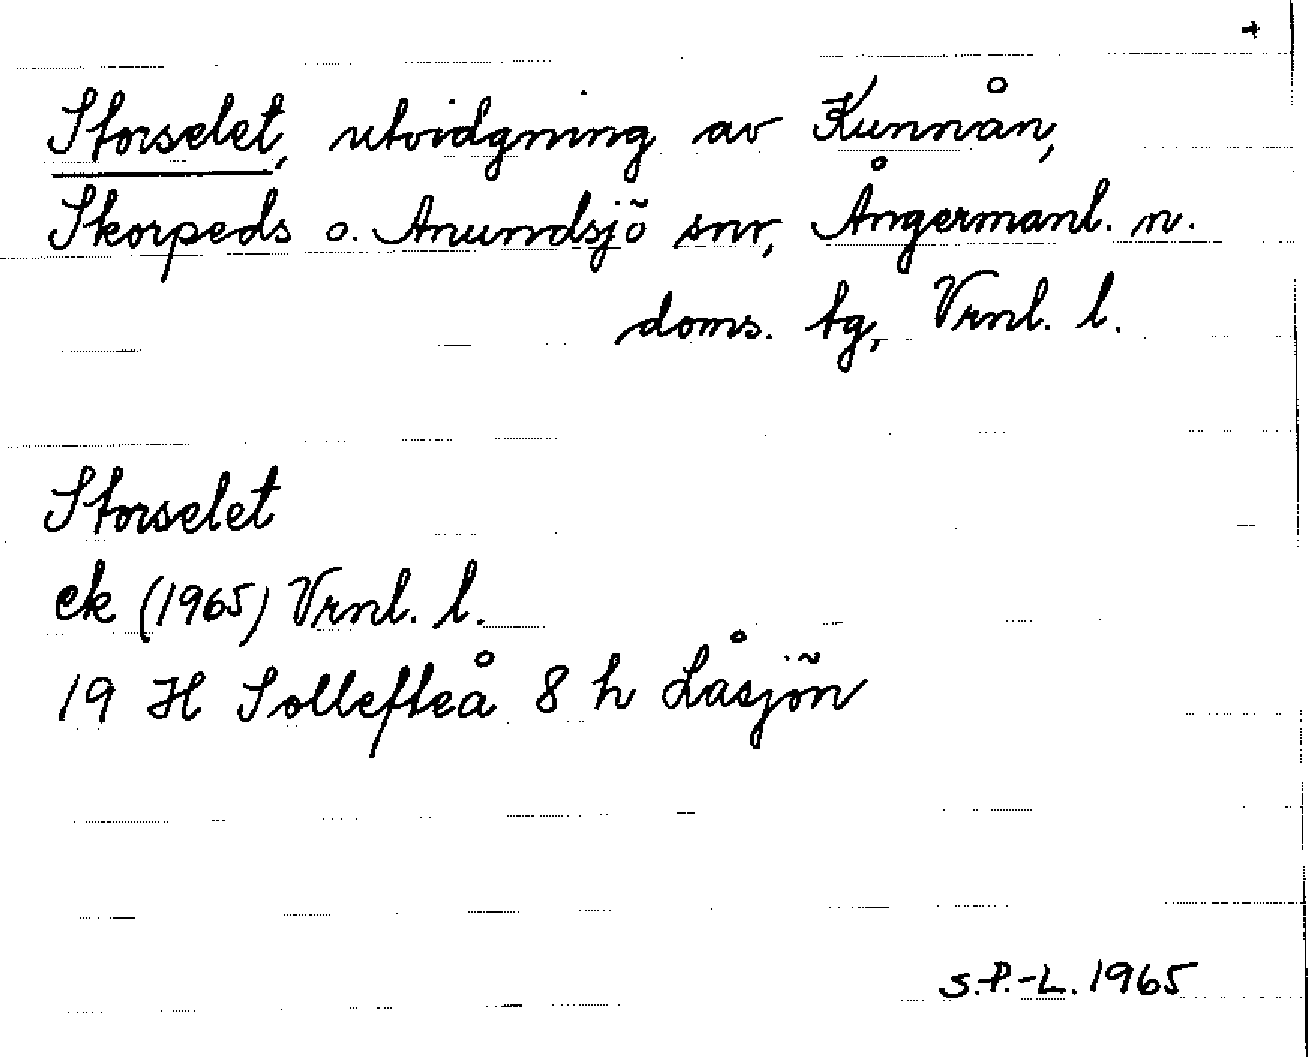 Storselet, utvidgning av Kunnån,
Skorpeds o. Anundsjö snr, Ångermanl. n.
doms. tg, Vrnl. l.
Storselet
ek (1965) Vrnl. l.
19 H Sollefteå 8 h Låsjön
S.-P.-L. 1965